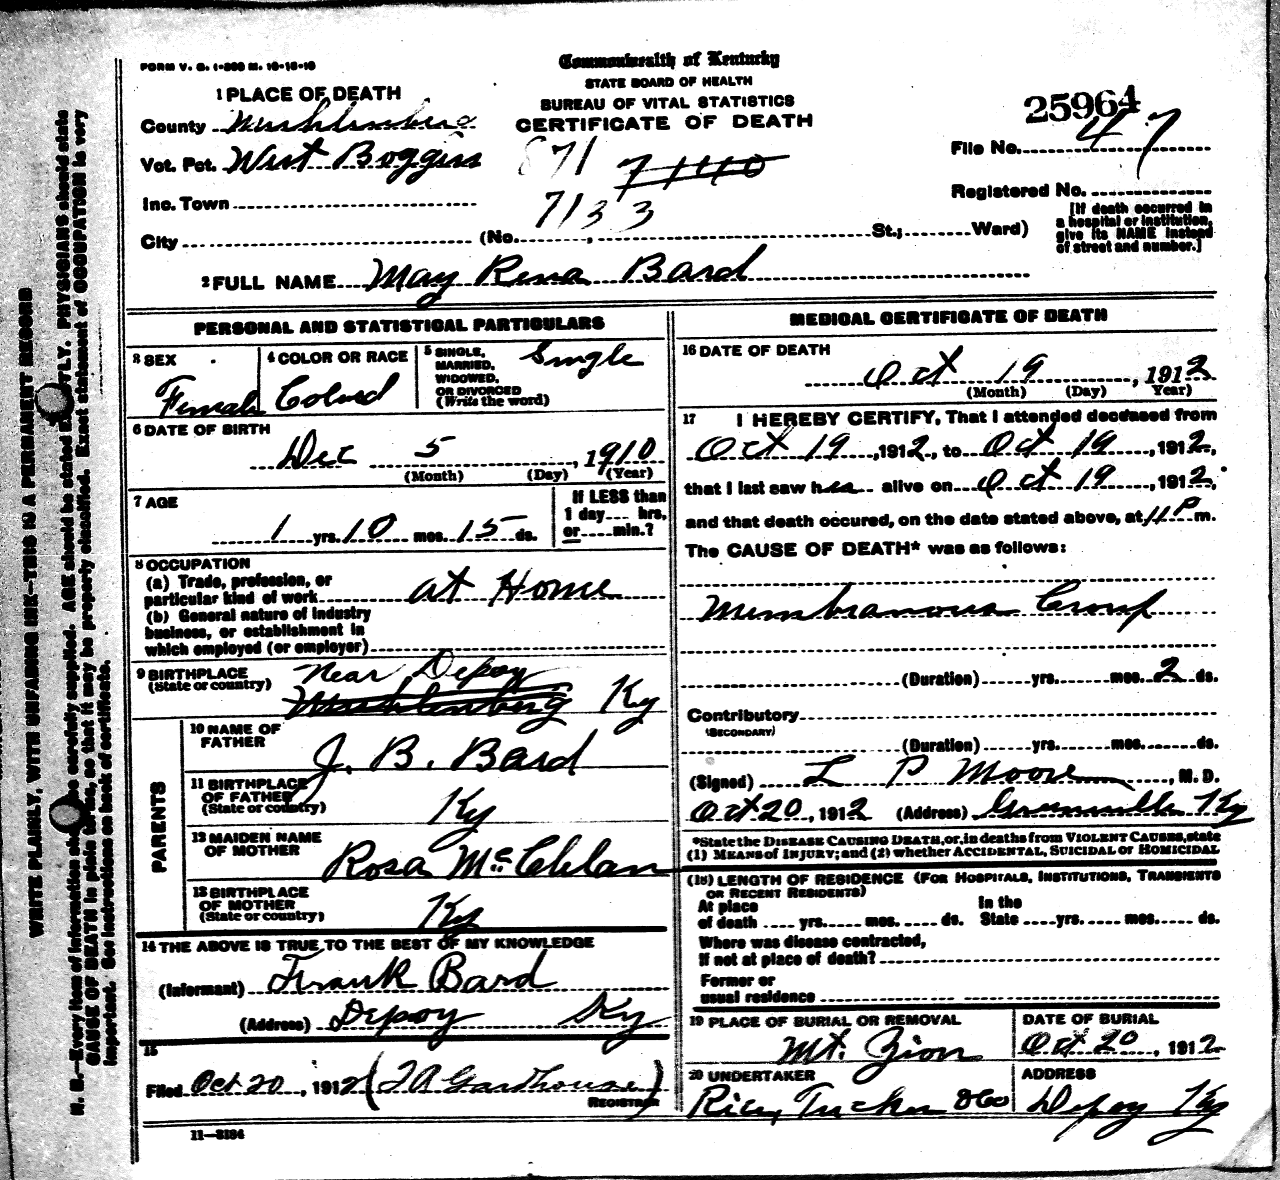 FORM V. S. 1-300 M. 10-18-10
Commonwealth of Kentucky
STATE BOARD OF HEALTH
BUREAU OF VITAL STATISTICS
CERTIFICATE OF DEATH
1 PLACE OF DEATH
County Muhlenberg
Vot. Pct. West Boggess
Inc. Town
City (No. , St.; Ward)
871 7140
7133
25964
File No. 47
Registered No.
[If death occurred in
a hospital or institution,
give its NAME instead
of street and number.]
2 FULL NAME May Rena Bard
PERSONAL AND STATISTICAL PARTICULARS
3 SEX
Female
4 COLOR OR RACE
Colord
5 SINGLE,
MARRIED,
WIDOWED,
OR DIVORCED
(Write the word)
Single
6 DATE OF BIRTH
Dec 5, 1910
(Month) (Day) (Year)
7 AGE
1 yrs. 10 mos. 15 ds.
If LESS than
1 day--- hrs.
or----min.?
8 OCCUPATION
(a) Trade, profession, or
particular kind of work at Home
(b) General nature of industry
business, or establishment in
which employed (or employer)
9 BIRTHPLACE
(State or country)
Near Depoy
Muhlenberg Ky
PARENTS
10 NAME OF
FATHER
J. B. Bard
11 BIRTHPLACE
OF FATHER
(State or country)
Ky
12 MAIDEN NAME
OF MOTHER
Rosa McClelan
13 BIRTHPLACE
OF MOTHER
(State or country)
Ky
14 THE ABOVE IS TRUE TO THE BEST OF MY KNOWLEDGE
(Informant) Frank Bard
(Address) Depoy Ky
15
Filed Oct 20, 1912 (J A Gardhouse)
REGISTRAR
11-3184
MEDICAL CERTIFICATE OF DEATH
16 DATE OF DEATH
Oct 19, 1912
(Month) (Day) Year)
17 I HEREBY CERTIFY, That I attended deceased from
Oct 19, 1912, to Oct 19, 1912,
that I last saw her alive on Oct 19, 1912,
and that death occured, on the date stated above, at 11 P m.
The CAUSE OF DEATH* was as follows:
Membranous Croup
(Duration) yrs. mos. 2 ds.
Contributory
(SECONDARY)
(Duration) yrs. mos. ds.
(Signed) L P Moore, M. D.
Oct 20, 1912 (Address) Greenville Ky
*State the DISEASE CAUSING DEATH, or, in deaths from VIOLENT CAUSES, state
(1) MEANS of INJURY; and (2) whether ACCIDENTAL, SUICIDAL or HOMICIDAL
(18) LENGTH OF RESIDENCE (FOR HOSPITALS, INSTITUTIONS, TRANSIENTS
OR RECENT RESIDENTS)
At place
of death yrs. mos. ds.
In the
State yrs. mos. ds.
Where was disease contracted,
If not at place of death?
Former or
usual residence
19 PLACE OF BURIAL OR REMOVAL
Mt. Zion
DATE OF BURIAL
Oct 20, 1912
20 UNDERTAKER
Rice, Tucker &Co
ADDRESS
Depoy Ky
WRITE PLAINLY, WITH UNFADING INK—THIS IS A PERMANENT RECORD
N. B.—Every item of information should be carefully supplied. AGE should be stated EXACTLY. PHYSICIANS should state
CAUSE OF DEATH in plain terms, so that it may be properly classified. Exact statement of OCCUPATION is very
important. See instructions on back of certificate.